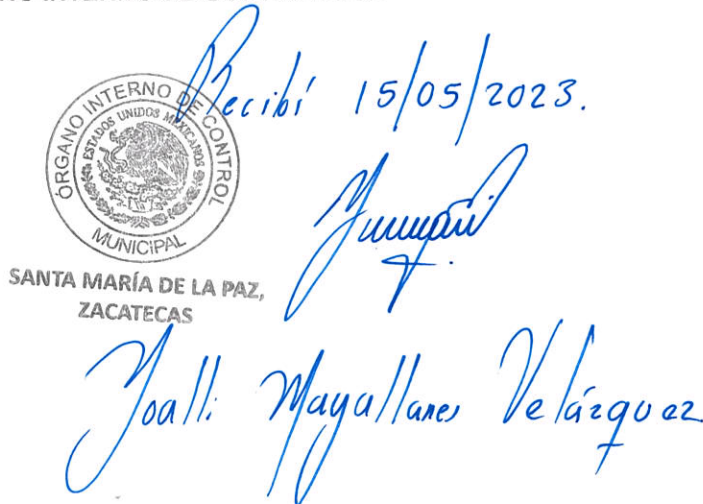 Recibí 15/05/2023.
ÓRGANO INTERNO DE CONTROL
ESTADOS UNIDOS MEXICANOS
MUNICIPAL
SANTA MARÍA DE LA PAZ,
ZACATECAS
Yoalli Magallanes Velázquez